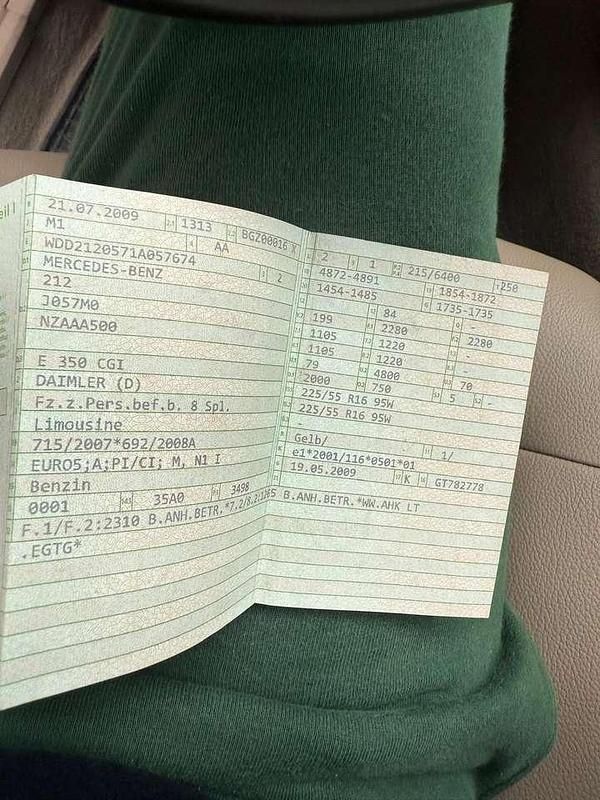 eil I
21.07.2009 1313 BGZ00016 X
M1 AA
WDD2120571A057674
MERCEDES-BENZ 2
212
J057M0
NZAAA500
E 350 CGI
DAIMLER (D)
Fz.z.Pers.bef.b. 8 Spl.
Limousine
715/2007*692/2008A
EURO5;A;PI/CI; M, N1 I
Benzin
0001 35A0 3498
F.1/F.2:2310 B.ANH.BETR.*7.2/8.2:1265 B.ANH.BETR.*WW.AHK LT
.EGTG*
2 1 215/6400 250
4872-4891 1854-1872
1454-1485 1735-1735
84
199 2280 2280
1105 1220 -
1105 1220 -
79 4800 70
2000 750 5 -
225/55 R16 95W
225/55 R16 95W
-
Gelb/ 1/
e1*2001/116*0501*01
19.05.2009 K GT782778